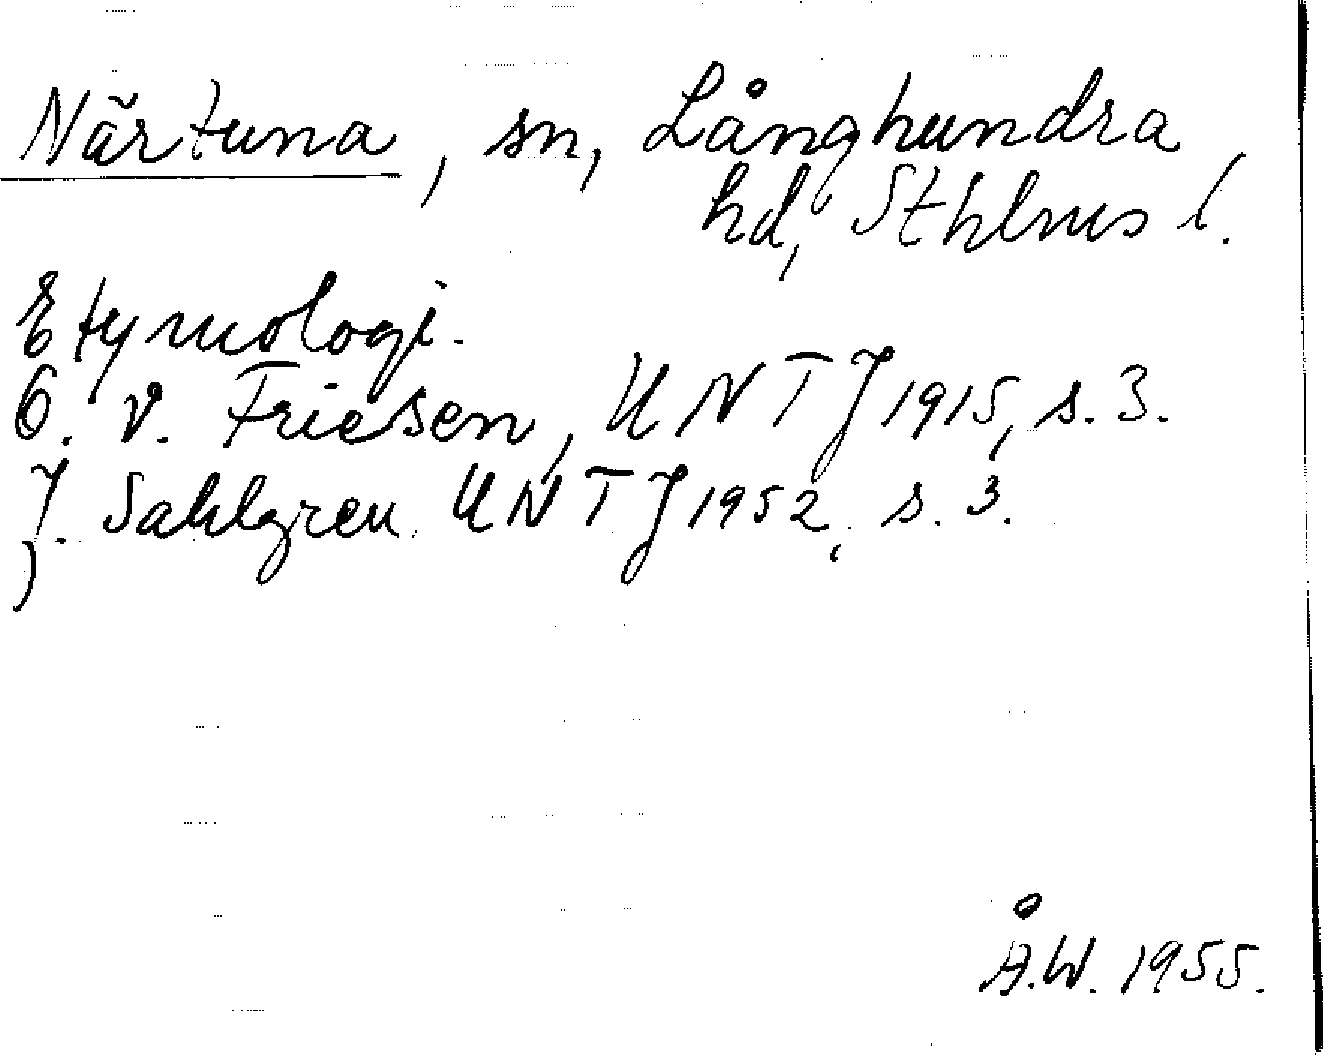 Närtuna, sn, Långhundra
hd, Sthlms l.
Etymologi.
O. v. Friesen, UNTJ 1915, s. 3.
J. Sahlgren UNTJ 1952, s. 3.
Å.W. 1955.